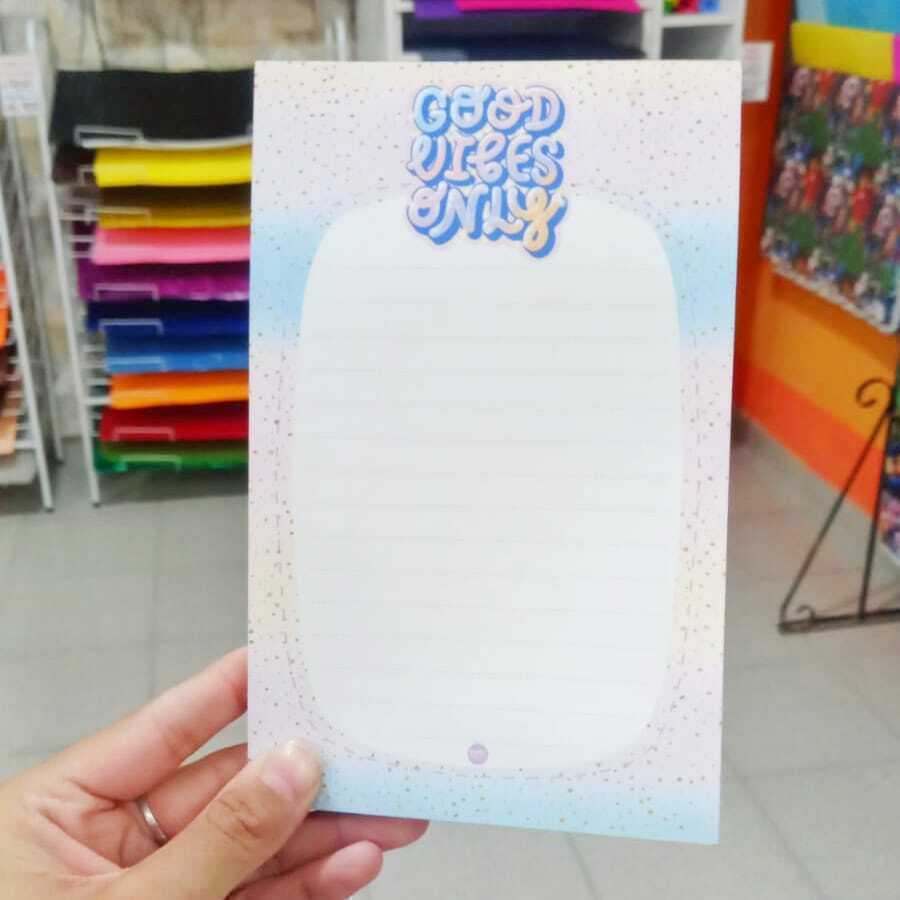 GOOD
VIBES
ONLY